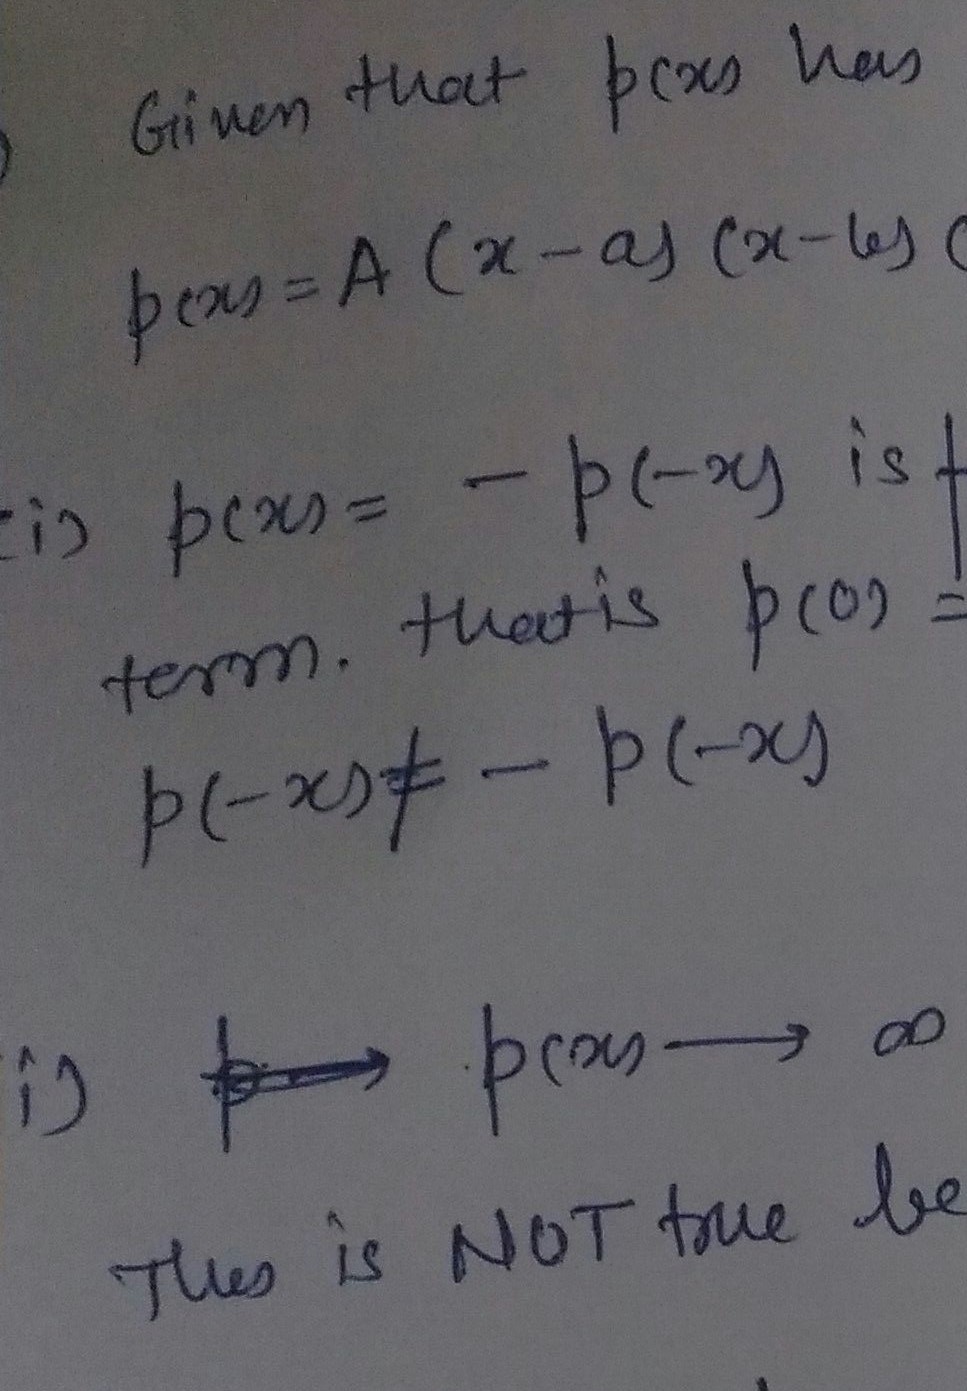 Given that p(x) has
p(x) = A (x - a) (x - b) (
ii) p(x) = - p(-x) is
term. that is p(0) =
p(-x) ≠ - p(-x)
i) p(x) → ∞
This is NOT true be